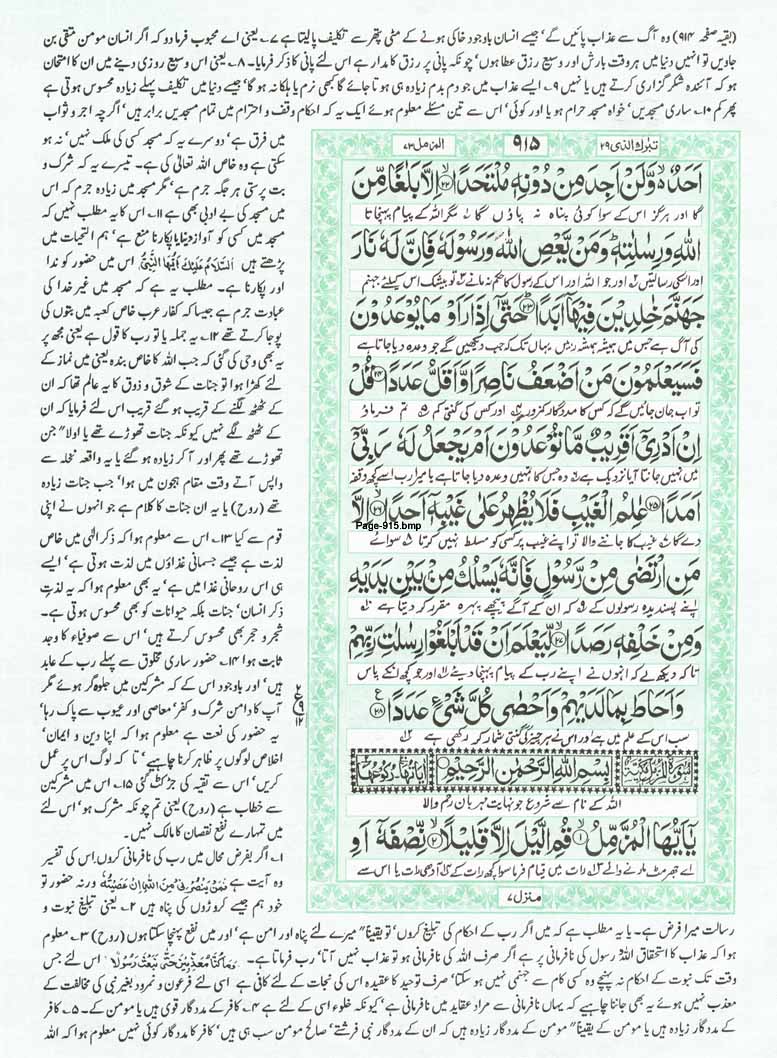 (بقیہ صفحہ ۹۱۴) وہ آگ سے عذاب پائیں گے' جیسے انسان باوجود خاکی ہونے کے مٹی پتھر سے تکلیف پالیتا ہے ۷۔ یعنی اے محبوب فرما دو کہ اگر انسان مومن متقی بن
جاویں تو انہیں دنیا میں ہر وقت بارش اور وسیع رزق عطا ہوں' چونکہ پانی پر رزق کا مدار ہے اس لئے پانی کا ذکر فرمایا۔ ۸۔ یعنی اس وسیع روزی دینے میں ان کا امتحان
ہو کہ آئندہ شکر گزاری کرتے ہیں یا نہیں ۹۔ ایسے عذاب میں جو دم بدم زیادہ ہی ہوتا جائے گا کبھی نرم یا ہلکا نہ ہو گا' جیسے دنیا میں تکلیف پہلے زیادہ محسوس ہوتی ہے
پھر کم ۱۰۔ ساری مسجدیں' خواہ مسجد حرام ہو یا اور کوئی' اس سے تین مسئلے معلوم ہوئے ایک یہ کہ احکام وقف و احترام میں تمام مسجدیں برابر ہیں' اگرچہ اجر و ثواب
تبٰرك الذی ۲۹
۹۱۵
المزمل ۷۳
اَحَدٌ ۙ وَّلَنْ اَجِدَ مِنْ دُوْنِهٖ مُلْتَحَدًا ۙ۲۲ اِلَّا بَلٰغًا مِّنَ
گا اور ہرگز اس کے سوا کوئی پناہ نہ پاؤں گا مگر اللہ کے پیام پہنچاتا
اللّٰهِ وَرِسٰلٰتِهٖ ؕ وَمَنْ يَّعْصِ اللّٰهَ وَرَسُوْلَهٗ فَاِنَّ لَهٗ نَارَ
اور اسکی رسالتیں اور جو اللہ اور اس کے رسول کا حکم نہ مانے تو بیشک اس کیلئے جہنم
جَهَنَّمَ خٰلِدِيْنَ فِيْهَاۤ اَبَدًا ؕ۲۳ حَتّٰۤى اِذَا رَاَوْا مَا يُوْعَدُوْنَ
کی آگ ہے جس میں ہمیشہ ہمیشہ رہیں یہاں تک کہ جب دیکھیں گے جو وعدہ دیا جاتا ہے
فَسَيَعْلَمُوْنَ مَنْ اَضْعَفُ نَاصِرًا وَّاَقَلُّ عَدَدًا ۲۴ قُلْ
تو اب جان جائیں گے کہ کس کا مددگار کمزور اور کس کی گنتی کم تم فرماؤ
اِنْ اَدْرِيْۤ اَقَرِيْبٌ مَّا تُوْعَدُوْنَ اَمْ يَجْعَلُ لَهٗ رَبِّيْۤ
میں نہیں جانتا آیا نزدیک ہے وہ جس کا تمہیں وعدہ دیا جاتا ہے یا میرا رب اسے کچھ وقفہ
اَمَدًا ۲۵ عٰلِمُ الْغَيْبِ فَلَا يُظْهِرُ عَلٰى غَيْبِهٖۤ اَحَدًا ۙ۲۶ اِلَّا
Page-915.bmp
دے گا غیب کا جاننے والا تو اپنے غیب پر کسی کو مسلط نہیں کرتا سوائے
مَنِ ارْتَضٰى مِنْ رَّسُوْلٍ فَاِنَّهٗ يَسْلُكُ مِنْۢ بَيْنِ يَدَيْهِ
اپنے پسندیدہ رسولوں کے کہ ان کے آگے پیچھے پہرہ مقرر کر دیتا ہے
وَمِنْ خَلْفِهٖ رَصَدًا ۙ۲۷ لِّيَعْلَمَ اَنْ قَدْ اَبْلَغُوْا رِسٰلٰتِ رَبِّهِمْ
تا کہ دیکھ لے کہ انہوں نے اپنے رب کے پیام پہنچا دیئے اور جو کچھ انکے پاس
وَاَحَاطَ بِمَا لَدَيْهِمْ وَاَحْصٰى كُلَّ شَیْءٍ عَدَدًا ۲۸
سب اس کے علم میں ہے اور اس نے ہر چیز کی گنتی شمار کر رکھی ہے
بِسْمِ اللّٰهِ الرَّحْمٰنِ الرَّحِيْمِ
اللہ کے نام سے شروع جو نہایت مہربان رحم والا
يٰۤاَيُّهَا الْمُزَّمِّلُ ۙ۱ قُمِ الَّيْلَ اِلَّا قَلِيْلًا ۙ۲ نِّصْفَهٗۤ اَوِ
اے جھرمٹ مارنے والے رات میں قیام فرما سوا کچھ رات کے آدھی رات یا اس سے
منزل ۷
میں فرق ہے' دوسرے یہ کہ مسجد کسی کی ملک نہیں' نہ ہو
سکتی ہے وہ خاص اللہ تعالیٰ کی ہے۔ تیسرے یہ کہ شرک و
بت پرستی ہر جگہ جرم ہے' مگر مسجد میں زیادہ جرم کہ اس
میں مسجد کی بے ادبی بھی ہے ۱۱۔ اس کا یہ مطلب نہیں کہ
مسجد میں کسی کو آواز دینا یا پکارنا منع ہے' ہم التحیات میں
پڑھتے ہیں اَلسَّلَامُ عَلَيْكَ اَيُّهَا النَّبِيُّ اس میں حضور کو ندا
اور پکارنا ہے۔ مطلب یہ ہے کہ مسجد میں غیر خدا کی
عبادت جرم ہے جیسا کہ کفار عرب خاص کعبہ میں بتوں کی
پوجا کرتے تھے ۱۲۔ یہ جملہ یا تو رب کا قول ہے یعنی مجھ پر
یہ بھی وحی کی گئی کہ جب اللہ کا خاص بندہ یعنی میں نماز کے
لئے کھڑا ہوا تو جنات کے شوق و ذوق کا یہ عالم تھا کہ ان
کے ٹھٹھ لگنے کے قریب ہو گئے قریب اس لئے فرمایا کہ ان
کے ٹھٹھ لگے نہیں کیونکہ جنات تھوڑے تھے یا اولاً" جن
تھوڑے تھے پھر اور آ کر زیادہ ہو گئے یا یہ واقعہ نخلہ سے
واپس آتے وقت مقام حجون میں ہوا' جب جنات زیادہ
تھے (روح) یا یہ ان جنات کا کلام ہے جو انہوں نے اپنی
قوم سے کیا ۱۳۔ اس سے معلوم ہوا کہ ذکر الٰہی میں خاص
لذت ہے جیسے جسمانی غذاؤں میں لذت ہوتی ہے' ایسے
ہی اس روحانی غذا میں ہے' یہ بھی معلوم ہوا کہ یہ لذت
ذکر انسان' جنات بلکہ حیوانات کو بھی محسوس ہوتی ہے۔
شجر و حجر بھی محسوس کرتے ہیں' اس سے صوفیاء کا وجد
ثابت ہوا ۱۴۔ حضور ساری مخلوق سے پہلے رب کے عابد
ہیں' اور باوجود اس کے کہ مشرکین میں جلوہ گر ہوئے مگر
آپ کا دامن شرک و کفر' معاصی اور عیوب سے پاک رہا'
یہ حضور کی نعت ہے معلوم ہوا کہ اپنا دین و ایمان'
اخلاص لوگوں پر ظاہر کرنا چاہیے' تا کہ لوگ اس پر عمل
کریں' اس سے تقیہ کی جڑ کٹ گئی ۱۵۔ اس میں مشرکین
سے خطاب ہے (روح) یعنی تم چونکہ مشرک ہو' اس لئے
میں تمہارے نفع نقصان کا مالک نہیں۔
۱۔ اگر بفرض محال میں رب کی نافرمانی کروں' اس کی تفسیر
وہ آیت ہے فَمَنْ يَّنْصُرُنِيْ مِنَ اللّٰهِ اِنْ عَصَيْتُهٗ ورنہ حضور تو
خود ہم جیسے کروڑوں کی پناہ ہیں ۲۔ یعنی تبلیغ نبوت و
رسالت میرا فرض ہے۔ یا یہ مطلب ہے کہ میں اگر رب کے احکام کی تبلیغ کروں' تو یقیناً" میرے لئے پناہ اور امن ہے' اور میں نفع پہنچا سکتا ہوں (روح) ۳۔ معلوم
ہوا کہ عذاب کا استحقاق اللہ' رسول کی نافرمانی پر ہے اگر صرف اللہ کی نافرمانی ہو تو عذاب نہیں آتا' رب فرماتا ہے۔ وَمَا كُنَّا مُعَذِّبِيْنَ حَتّٰى نَبْعَثَ رَسُوْلًا اس لئے جس
وقت تک نبوت کے احکام نہ پہنچے وہ کسی کام سے جہنمی نہیں ہو سکتا' صرف توحید کا عقیدہ اس کی نجات کے لئے کافی ہے اسی لئے فرعون و نمرود بغیر نبی کی مخالفت کے
معذب نہیں ہوئے یہ بھی جاننا چاہیے کہ یہاں نافرمانی سے مراد عقاید میں نافرمانی ہے' کیونکہ خلوء اسی کے لئے ہے ۴۔ کافر کے مددگار قوی ہیں یا مومن کے۔ ۵۔ کافر
کے مددگار زیادہ ہیں یا مومن کے یقیناً" مومن کے مددگار زیادہ ہیں کہ ان کے مددگار نبی فرشتے' صالح مومن سب ہی ہیں' کافر کا مددگار کوئی نہیں معلوم ہوا کہ اللہ